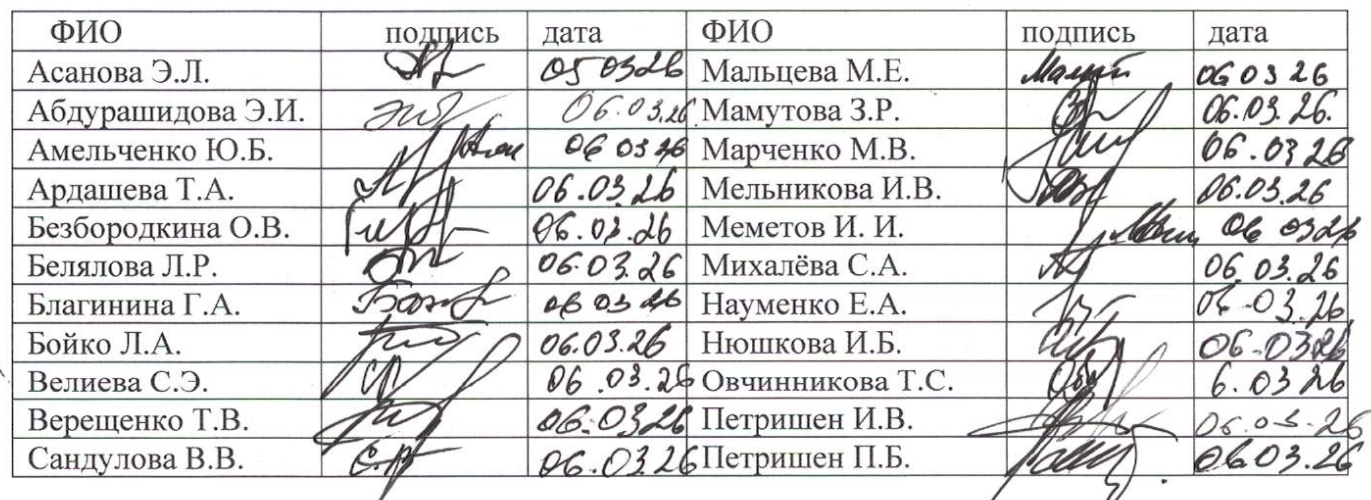 ФИО подпись дата ФИО подпись дата
Асанова Э.Л. 05 03 26 Мальцева М.Е. 06 03 26
Абдурашидова Э.И. 06.03.26 Мамутова З.Р. 06.03.26.
Амельченко Ю.Б. 06 03 26 Марченко М.В. 06.03 26
Ардашева Т.А. 06.03.26 Мельникова И.В. 06.03.26
Безбородкина О.В. 06.03.26 Меметов И. И. 06 03 26
Белялова Л.Р. 06.03.26 Михалёва С.А. 06.03.26
Благинина Г.А. 06 03 26 Науменко Е.А. 06.03.26
Бойко Л.А. 06.03.26 Нюшкова И.Б. 06.03 26
Велиева С.Э. 06.03.26 Овчинникова Т.С. 6.03 26
Верещенко Т.В. 06.03.26 Петришен И.В. 06.03.26
Сандулова В.В. 06.03.26 Петришен П.Б. 06.03.26